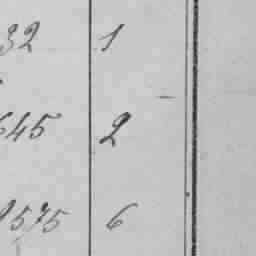 32 1
645 2
2575 6